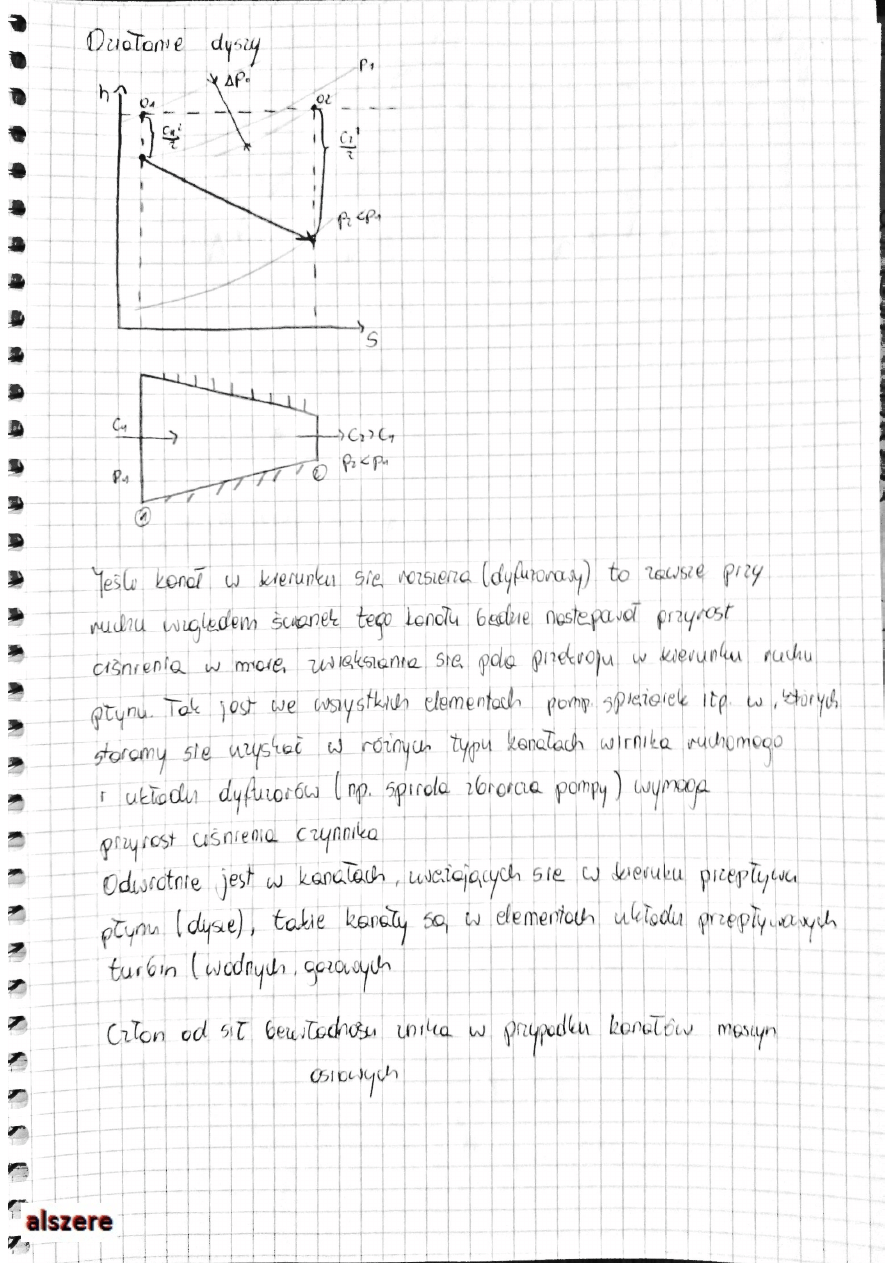 Działanie dyszy
h
01
ΔP0
02
P1
C1²/2
C2²/2
P2<P1
S
C1
C2>C1
P2<P1
P1
1
2
Jeśli kanał w kierunku się rozsierza (dyfuzorowy) to zawsze przy
ruchu względem ścianek tego kanału będzie nastepował przyrost
ciśnienia w miarę zwiększania się pola przekroju w kierunku ruchu
płynu. Tak jest we wszystkich elementach pomp. sprężarek itp. w, których
staramy się uzyskać w różnych typu kanałach wirnika ruchomego
i układu dyfuzorów (np. spirala zbiorcza pompy) wymaga
przyrost ciśnienia czynnika
Odwrotnie jest w kanałach, zwężających się w kieruku przepływu
płynu (dysze), takie kanały są w elementach układu przepływowych
turbin (wodnych, gazowych
Człon od sił bezwładności znika w przypadku kanałów maszyn
osiowych
alszere